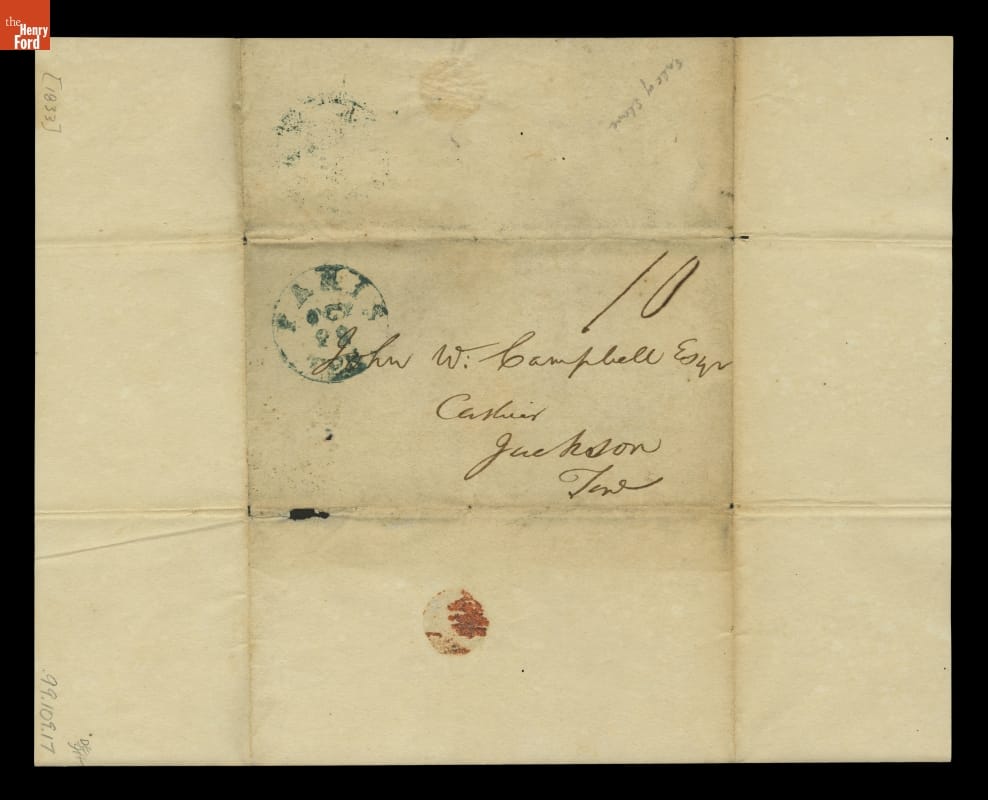 the
Henry
Ford
[1833]
Sale of Slave
10
PARIS
OCT
John W. Campbell Esqr
Cashier
Jackson
Ten
99.109.17